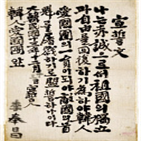 宣誓文
나는赤誠으로써祖國의獨立
과自由를回復하기爲하야韓人
愛國團의一員이되야敵國의首
魁를屠戮하기로盟誓하나이다
大韓民國十三年十二月十三日
宣誓人 李奉昌
韓人愛國團앞